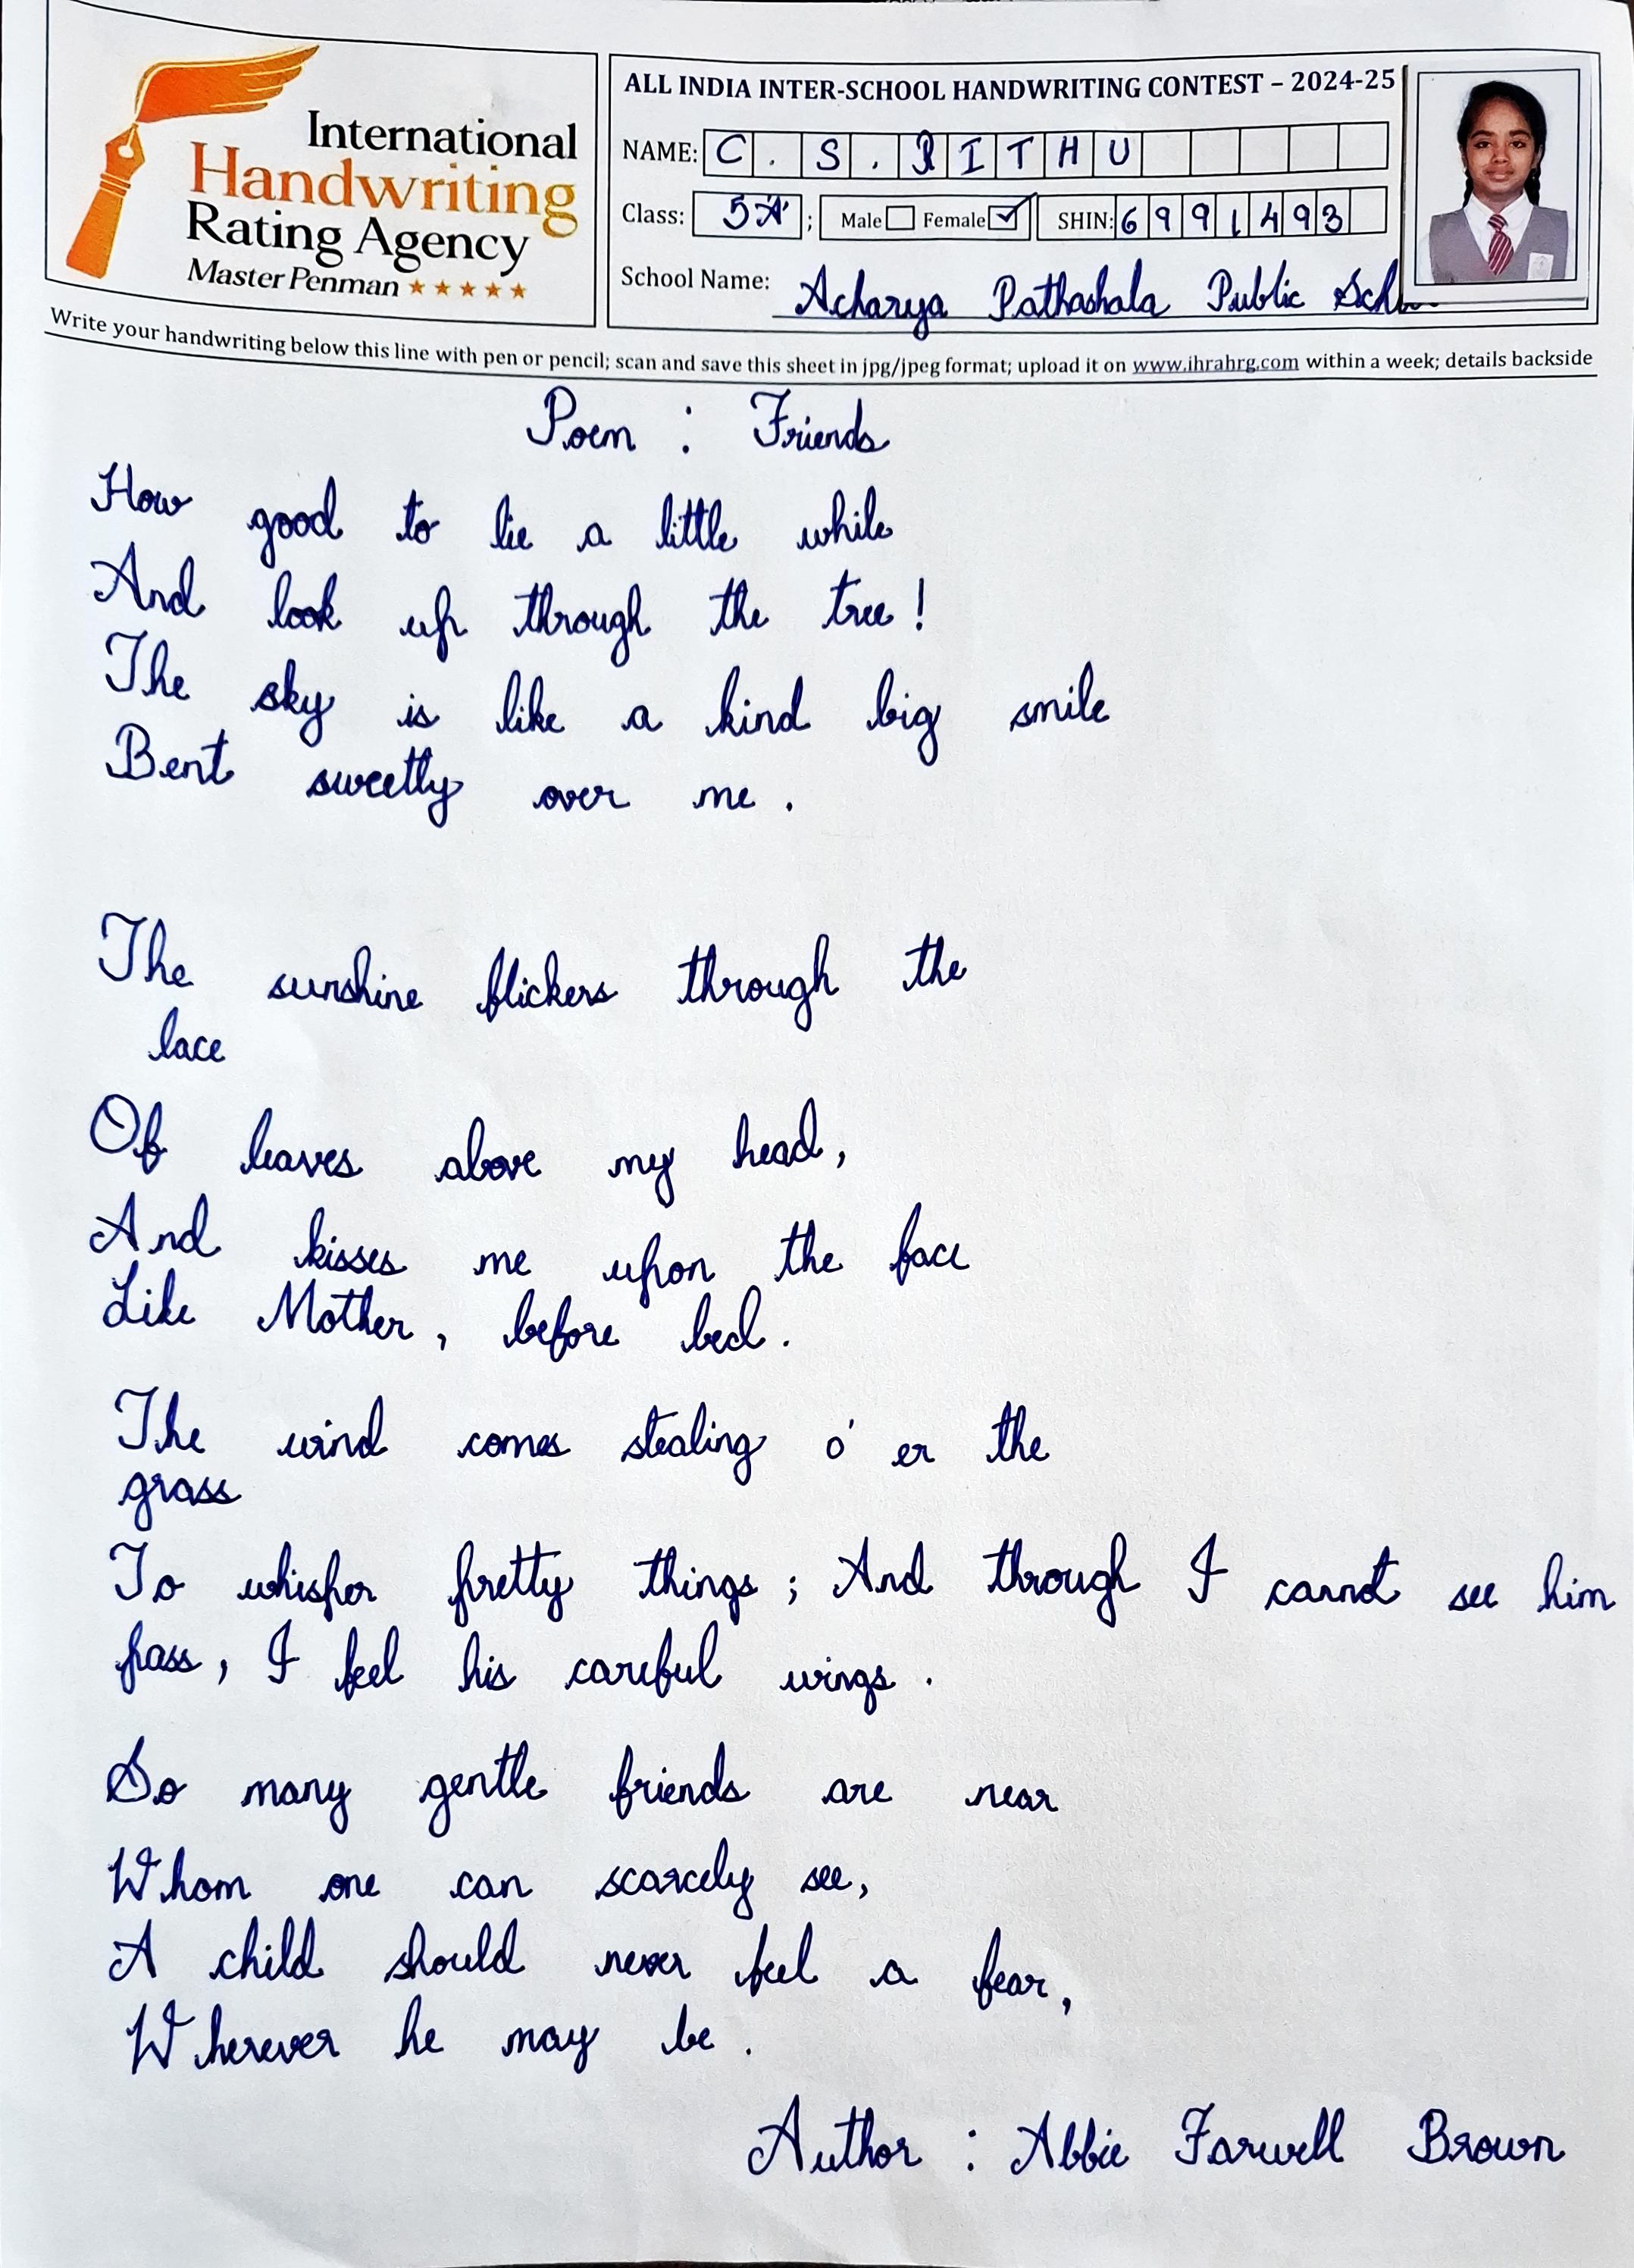 International
Handwriting
Rating Agency
Master Penman
ALL INDIA INTER-SCHOOL HANDWRITING CONTEST – 2024-25
NAME: C . S . RITHU
Class: 5 'A' ; Male Female SHIN: 6991493
School Name: Acharya Pathashala Public
Write your handwriting below this line with pen or pencil; scan and save this sheet in jpg/jpeg format; upload it on www.ihrahrg.com within a week; details backside
Poem : Friends
How good to lie a little while
And look up through the tree!
The sky is like a kind big smile
Bent sweetly over me .
The sunshine flickers through the
lace
Of leaves above my head,
And kisses me upon the face
Like Mother, before bed.
The wind comes stealing o' er the
grass
To whisper pretty things ; And through I cannot see him
pass, I feel his careful wings .
So many gentle friends are near
Whom one can scarcely see,
A child should never feel a fear,
Wherever he may be .
Author : Abbie Farwell Brown